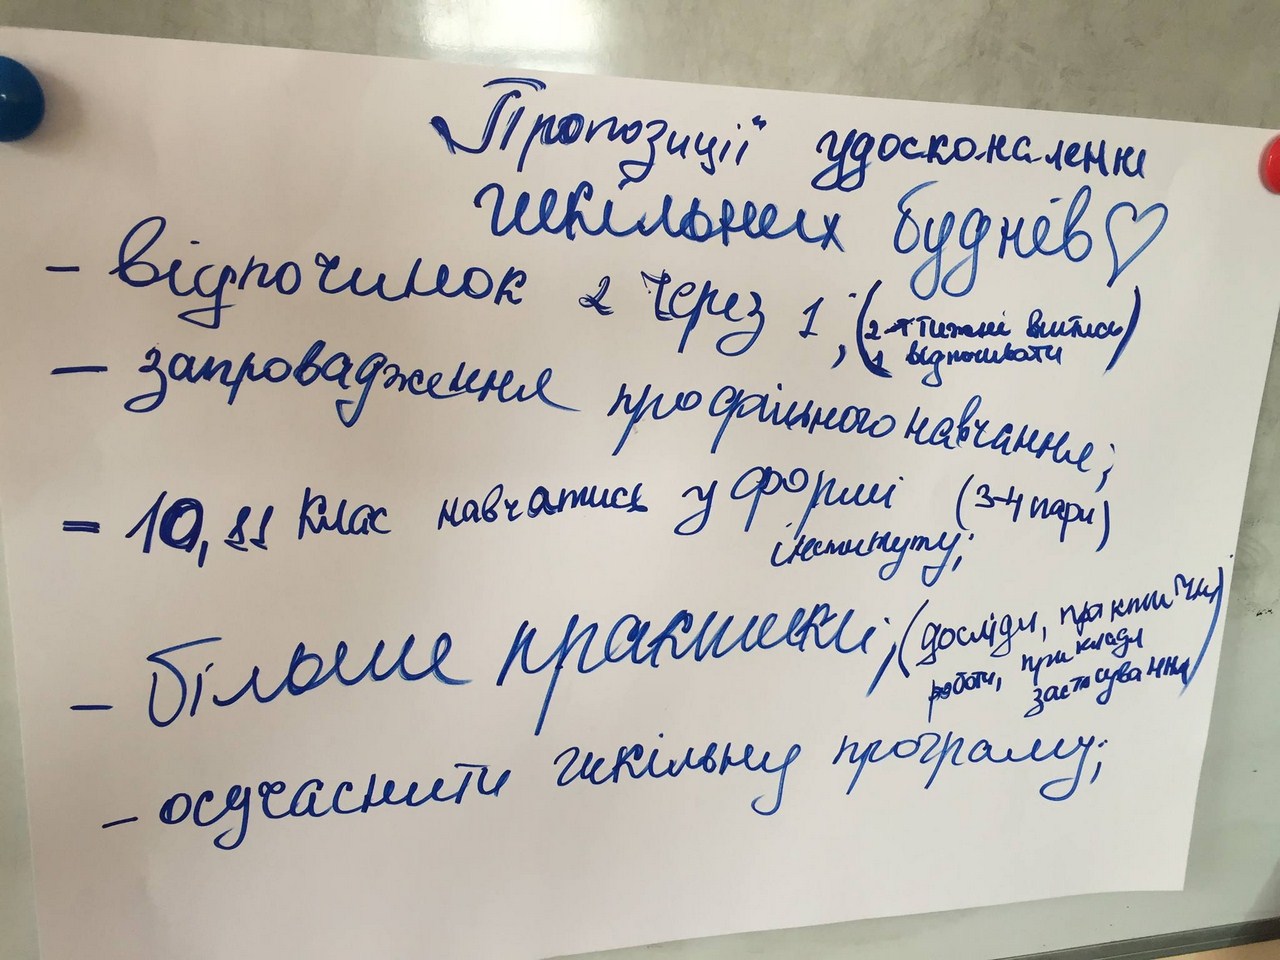 „Пропозиції" удосконаленн
шкільних буднів♡
- відпочинок 2 через 1; (2 тижні вчитись
1 відпочивати)
- запровадження профільного навчання;
= 10, 11 клас навчатись у формі (3-4 пари)
інституту;
- більше практики; (досліди, практичні
роботи, приклади
застосування)
- осучаснити шкільну програму;